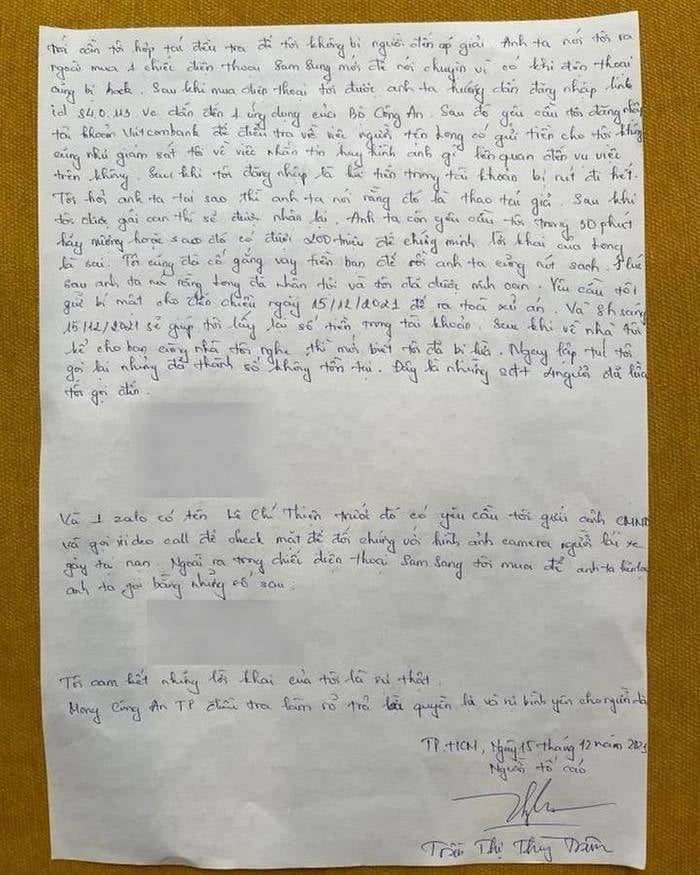 tôi cần tôi hợp tác điều tra để tôi không bị người đến áp giải. Anh ta nói tôi ra
ngoài mua 1 chiếc điện thoại Sam Sung mới để nói chuyện vì có khi điện thoại
cũng bị hack. Sau khi mua điện thoại tôi được anh ta hướng dẫn đăng nhập link
id 84.0.113 và dẫn đến 1 ứng dụng của Bộ Công An. Sau đó yêu cầu tôi đăng nhập
tài khoản Vietcombank để điều tra về việc người tên Long có gửi tiền cho tôi không
cũng như giám sát tôi về việc nhắn tin hay hình ảnh gì liên quan đến vụ việc
trên không. Sau khi tôi đăng nhập là tiền trong tài khoản bị rút đi hết.
Tôi hỏi anh ta tại sao thì anh ta nói rằng đó là thao tác giả. Sau khi
tôi được giải oan thì sẽ được nhận lại. Anh ta còn yêu cầu tôi trong 30 phút
hãy mượn hoặc sao đó có được 200 triệu để chứng minh lời khai của Long
là sai. Tôi cũng đã cố gắng vay tiền bạn để rồi anh ta cũng rút sạch. 1 lúc
sau anh ta nói rằng Long đã nhận tội và tôi đã được minh oan. Yêu cầu tôi
giữ bí mật cho đến chiều ngày 15/12/2021 để ra toà xử án. Và 8h sáng
15/12/2021 sẽ giúp tôi lấy lại số tiền trong tài khoản. Sau khi về nhà tôi
kể cho bạn cùng nhà tôi nghe thì mới biết tôi đã bị lừa. Ngay lập tức tôi
gọi lại nhưng đã thành số không tồn tại. Đây là những sđt 4 người đã lừa
tôi gọi đến.
Và 1 zalo có tên Lê Chí Thiện trước đó có yêu cầu tôi gửi ảnh CMND
và gọi video call để check mặt để đối chứng với hình ảnh camera người lái xe
gây tai nạn. Ngoài ra trong chiếc điện thoại Sam Sang tôi mua để anh ta liên lạc
anh ta gọi bằng những số sau:
Tôi cam kết những lời khai của tôi là sự thật.
Mong Công An TP điều tra làm rõ trả lại quyền là và sự bình yên cho người dân
TP.HCM, Ngày 15 tháng 12 năm 2021
Người tố cáo
Trần Thị Thuỳ Trâm